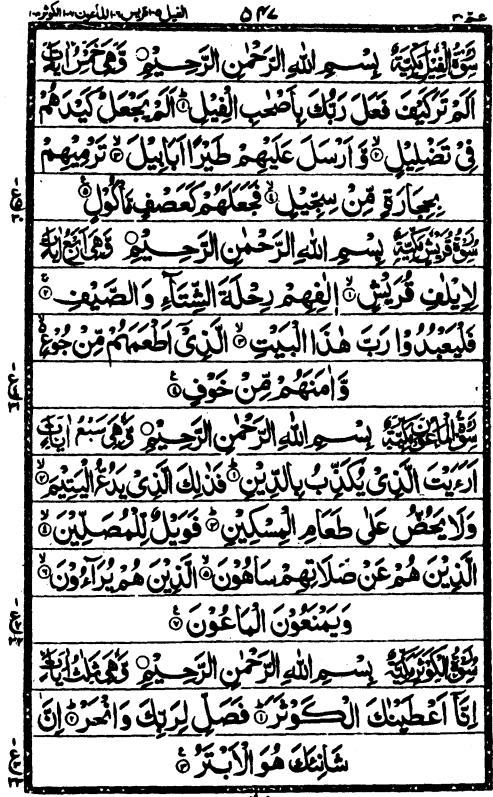 عمّ ٣٠ ٥٤٧ الفيل ١٠٥ قريش ١٠٦ الماعون ١٠٧ الكوثر ١٠٨
سُوْرَةُ الْفِيْلِ مَكِّيَّةٌ بِسْمِ اللهِ الرَّحْمٰنِ الرَّحِيْمِ ۝ وَّهِيَ خَمْسُ اٰيَاتٍ
اَلَمْ تَرَ كَيْفَ فَعَلَ رَبُّكَ بِاَصْحٰبِ الْفِيْلِ ۝١ اَلَمْ يَجْعَلْ كَيْدَهُمْ
فِيْ تَضْلِيْلٍ ۝٢ وَّ اَرْسَلَ عَلَيْهِمْ طَيْرًا اَبَابِيْلَ ۝٣ تَرْمِيْهِمْ
بِحِجَارَةٍ مِّنْ سِجِّيْلٍ ۝٤ فَجَعَلَهُمْ كَعَصْفٍ مَّاْكُوْلٍ ۝٥
سُوْرَةُ قُرَيْشٍ مَكِّيَّةٌ بِسْمِ اللهِ الرَّحْمٰنِ الرَّحِيْمِ ۝ وَّهِيَ اَرْبَعُ اٰيَاتٍ
لِاِيْلٰفِ قُرَيْشٍ ۝١ اٖلٰفِهِمْ رِحْلَةَ الشِّتَآءِ وَالصَّيْفِ ۝٢
فَلْيَعْبُدُوْا رَبَّ هٰذَا الْبَيْتِ ۝٣ الَّذِيْٓ اَطْعَمَهُمْ مِّنْ جُوْعٍ
وَّاٰمَنَهُمْ مِّنْ خَوْفٍ ۝٤
سُوْرَةُ الْمَاعُوْنِ مَكِّيَّةٌ بِسْمِ اللهِ الرَّحْمٰنِ الرَّحِيْمِ ۝ وَّهِيَ سَبْعُ اٰيَاتٍ
اَرَءَيْتَ الَّذِيْ يُكَذِّبُ بِالدِّيْنِ ۝١ فَذٰلِكَ الَّذِيْ يَدُعُّ الْيَتِيْمَ ۝٢
وَلَا يَحُضُّ عَلٰى طَعَامِ الْمِسْكِيْنِ ۝٣ فَوَيْلٌ لِّلْمُصَلِّيْنَ ۝٤
الَّذِيْنَ هُمْ عَنْ صَلَاتِهِمْ سَاهُوْنَ ۝٥ الَّذِيْنَ هُمْ يُرَآءُوْنَ ۝٦
وَيَمْنَعُوْنَ الْمَاعُوْنَ ۝٧
سُوْرَةُ الْكَوْثَرِ مَكِّيَّةٌ بِسْمِ اللهِ الرَّحْمٰنِ الرَّحِيْمِ ۝ وَّهِيَ ثَلٰثُ اٰيَاتٍ
اِنَّآ اَعْطَيْنٰكَ الْكَوْثَرَ ۝١ فَصَلِّ لِرَبِّكَ وَانْحَرْ ۝٢ اِنَّ
شَانِئَكَ هُوَ الْاَبْتَرُ ۝٣